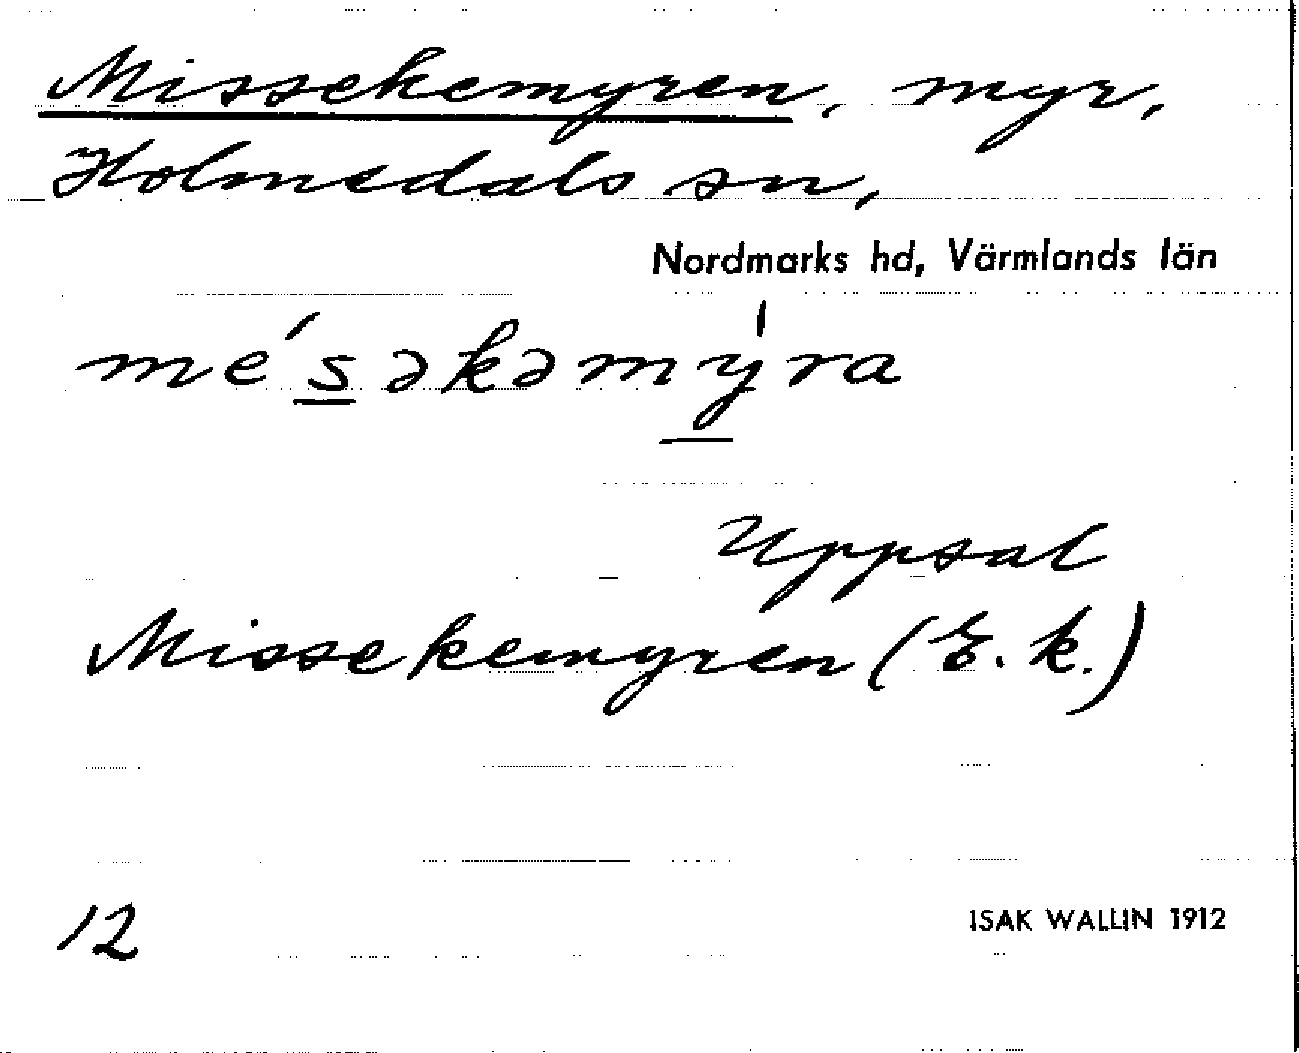 Missekemyren, myr,
Holmedals sn,
Nordmarks hd, Värmlands län
mésəkəmy̍ra
Uppsal
Missekemyren (E.k.)
12
ISAK WALLIN 1912